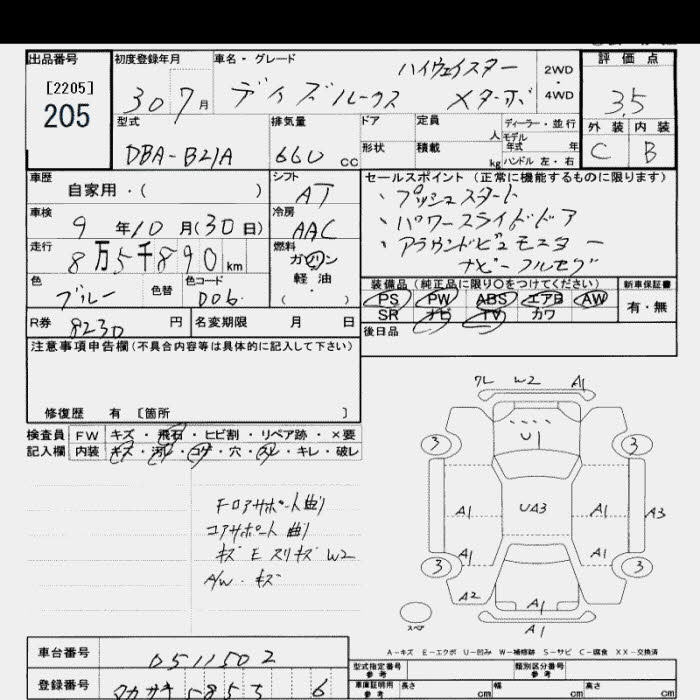 出品番号
[2205]
205
初度登録年月
30 7月
車名・グレード
ハイウェイスター
デイズルークス メターボ
2WD
・
4WD
評価点
3.5
外装 内装
C B
型式
DBA-B21A
排気量
660 cc
ドア
形状
定員 人
積載 kg
ディーラー・並行
モデル
年式 年
ハンドル 左・右
車歴
自家用・( )
シフト
AT
車検
9年10月(30日)
冷房
AAC
走行
8万5千890km
燃料
ガソリン
軽油
・
( )
色
ブルー
色替
色コード
D06.
R券 8230円
名変期限 月 日
セールスポイント (正常に機能するものに限ります)
、プッシュスタート
、パワースライドドア
、アラウンドビュモニター
ナビーフルセグ
装備品(純正品に限り○をつけてください)
PS PW ABS エアB AW
SR ナビ TV カワ
新車保証書
有・無
後日品
注意事項申告欄(不具合内容等は具体的に記入して下さい)
修復歴 有 [箇所 ]
検査員
記入欄
FW キズ・飛石・ヒビ割・リペア跡・×要
内装 キズ・汚レ・コゲ・穴・スレ・キレ・破レ
フロアサポート曲り
コアサポート曲り
キズ E スリキズ W2
A/W・キズ
ワレ W2 A1
U1
3 3
A1 UA3 A1 A3
A1 A1
3 3
A2 A1
スペア
A1
A-キズ E-エクボ U-凹み W-補修跡 S-サビ C-腐食 XX-交換済
車台番号
0511502
登録番号
タカサキ 5853 6
型式指定番号
参考
類別区分番号
参考
車庫証明用
参考
長さ cm
幅 cm
高さ cm